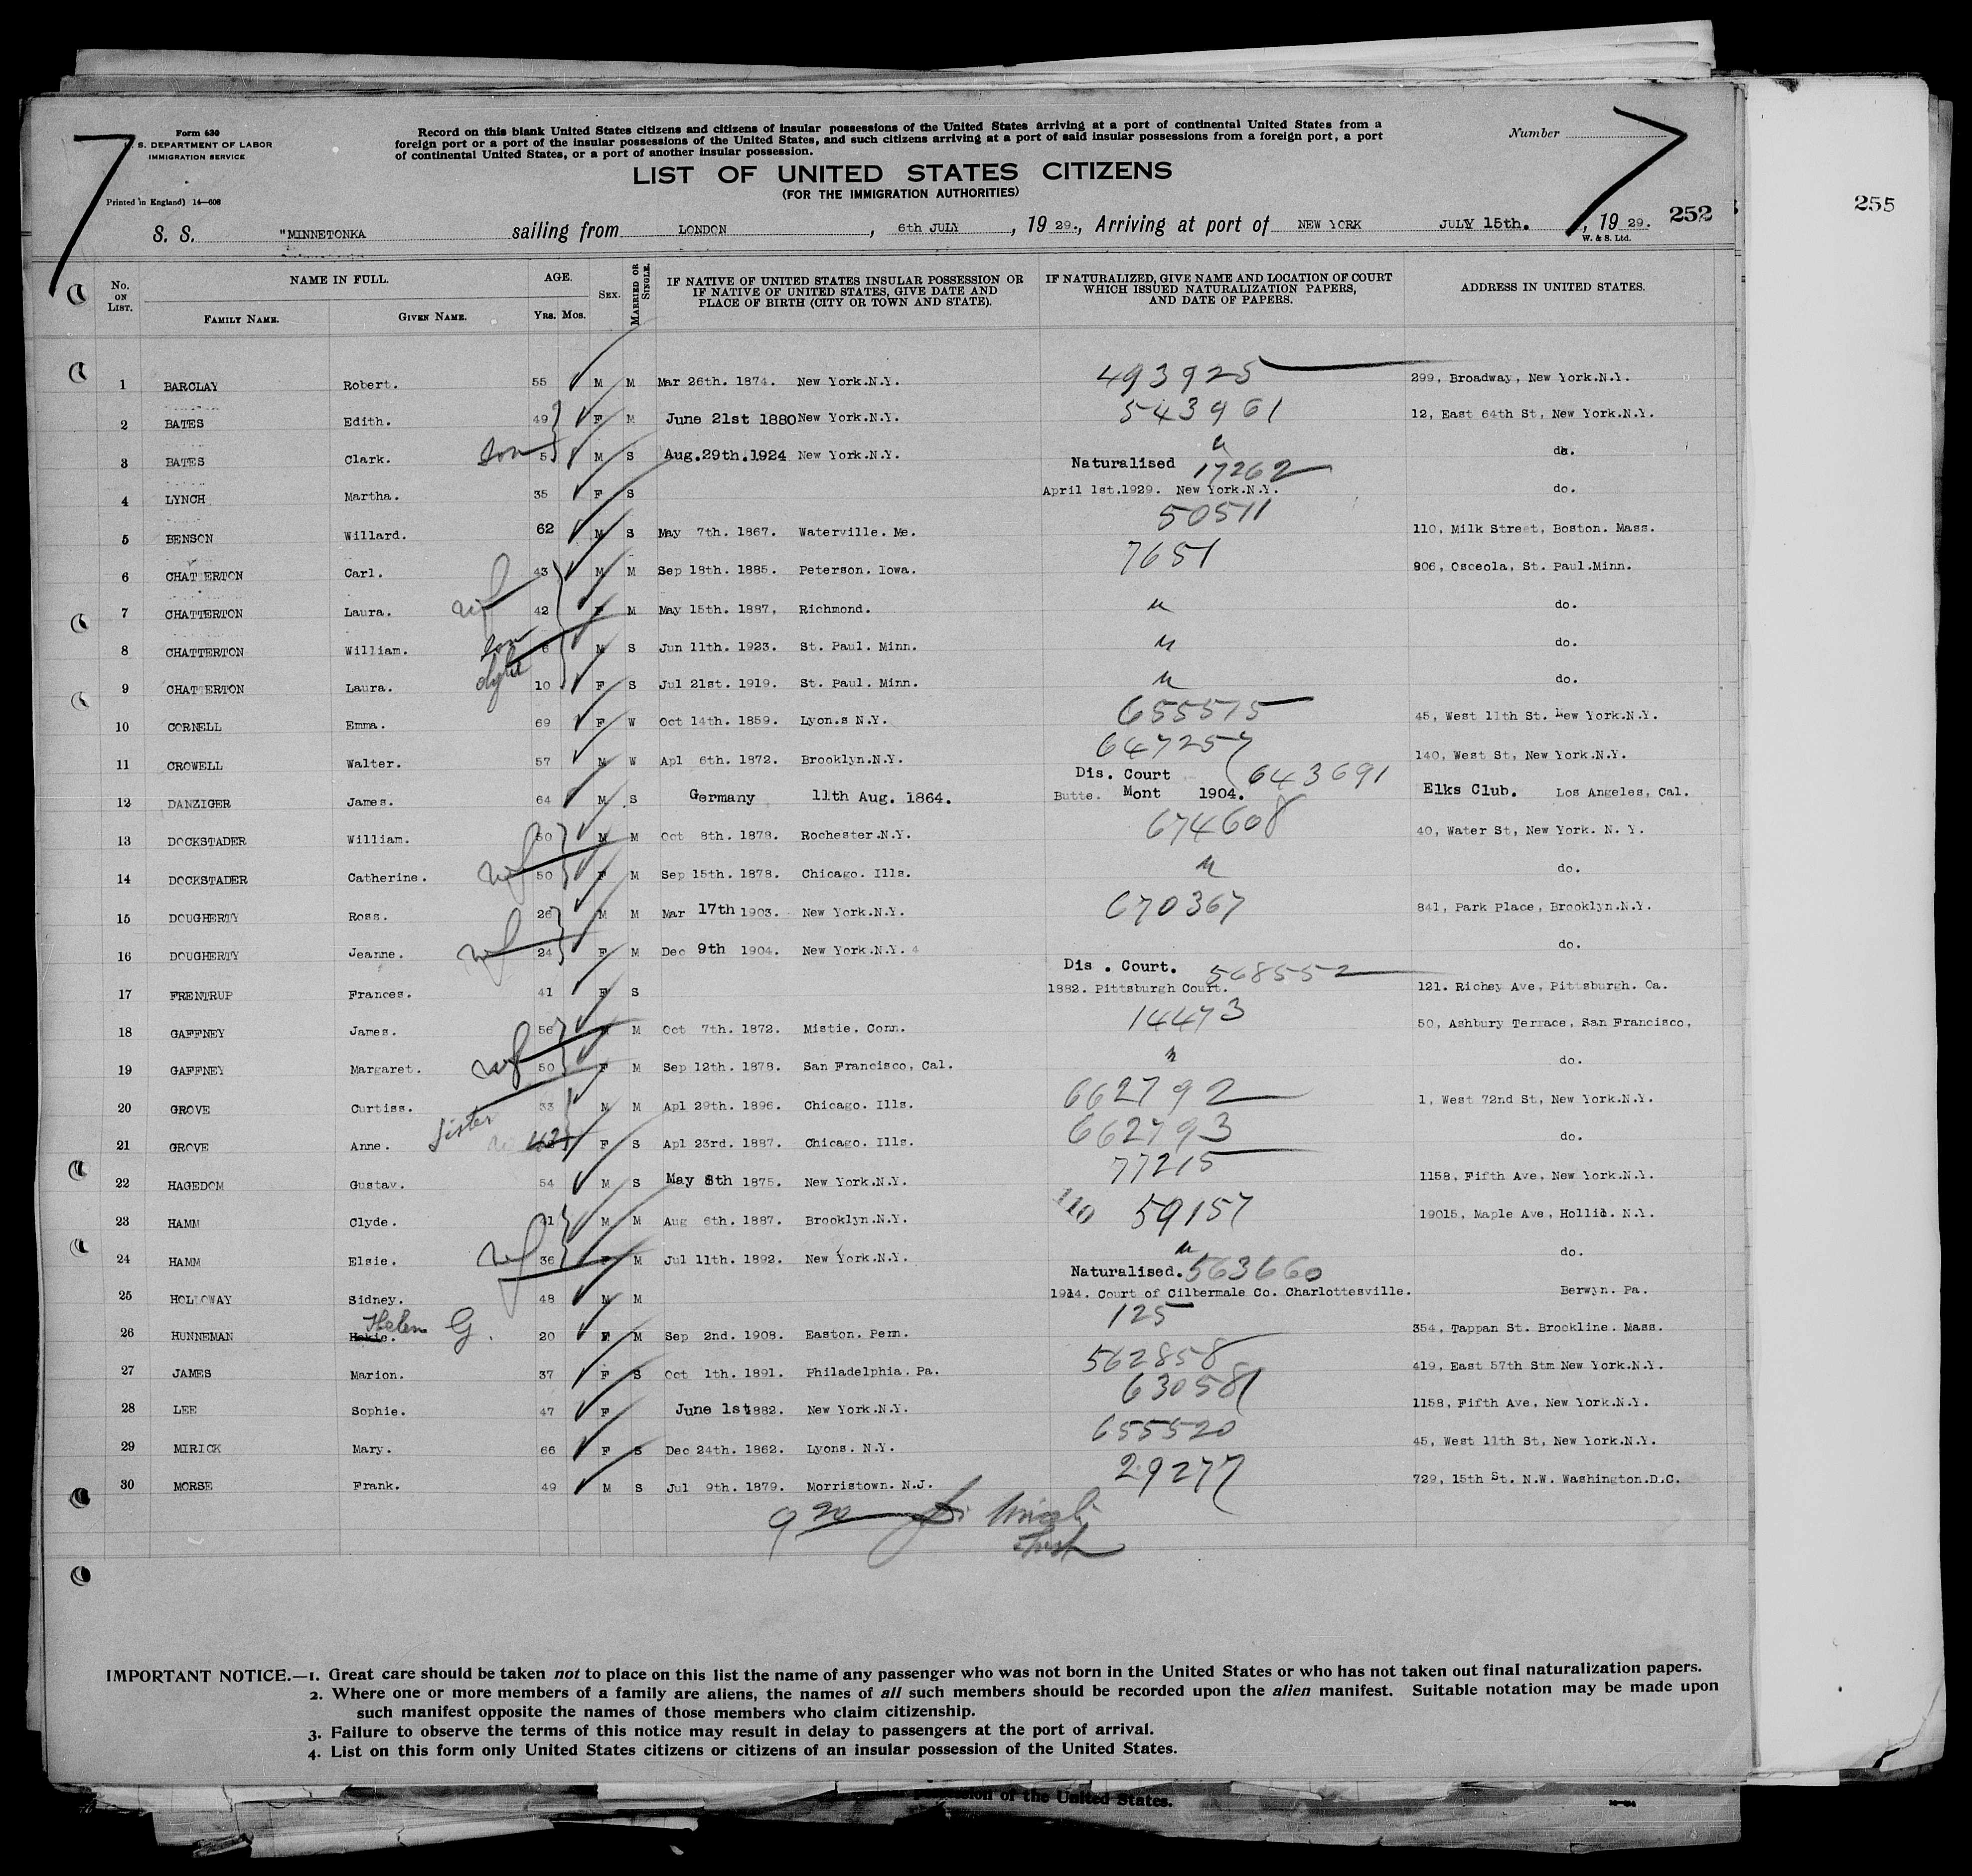 Form 630
S. DEPARTMENT OF LABOR
IMMIGRATION SERVICE
Printed in England) 14—608
Record on this blank United States citizens and citizens of insular possessions of the United States arriving at a port of continental United States from a
foreign port or a port of the insular possessions of the United States, and such citizens arriving at a port of said insular possessions from a foreign port, a port
of continental United States, or a port of another insular possession.
Number
LIST OF UNITED STATES CITIZENS
(FOR THE IMMIGRATION AUTHORITIES)
S. S. "MINNETONKA sailing from LONDON, 6th JULY, 19 29., Arriving at port of NEW YORK JULY 15th., 19 29. 252
W. & S. Ltd.
255
No. ON LIST. NAME IN FULL. FAMILY NAME. GIVEN NAME. AGE. YRS. MOS. SEX. MARRIED OR SINGLE. IF NATIVE OF UNITED STATES INSULAR POSSESSION OR IF NATIVE OF UNITED STATES, GIVE DATE AND PLACE OF BIRTH (CITY OR TOWN AND STATE). IF NATURALIZED, GIVE NAME AND LOCATION OF COURT WHICH ISSUED NATURALIZATION PAPERS, AND DATE OF PAPERS. ADDRESS IN UNITED STATES.
1 BARCLAY Robert. 55 M M Mar 26th. 1874. New York.N.Y. 493925 299, Broadway, New York.N.Y.
2 BATES Edith. 49 F M June 21st 1880 New York.N.Y. 543961 12, East 64th St, New York.N.Y.
3 BATES Clark. son 5 M S Aug.29th.1924 New York.N.Y. " do.
4 LYNCH Martha. 35 F S Naturalised 17262 April 1st.1929. New York.N.Y. do.
5 BENSON Willard. 62 M S May 7th. 1867. Waterville. Me. 50511 110, Milk Street, Boston. Mass.
6 CHAT ERTON Carl. 43 M M Sep 18th. 1885. Peterson. Iowa. 7651 906, Osceola, St. Paul.Minn.
7 CHATTERTON Laura. wf 42 F M May 15th. 1887, Richmond. " do.
8 CHATTERTON William. son 6 M S Jun 11th. 1923. St. Paul. Minn. " do.
9 CHATTERTON Laura. 10 F S Jul 21st. 1919. St. Paul. Minn. " do.
10 CORNELL Emma. 69 F W Oct 14th. 1859. Lyon.s N.Y. 655575 45, West 11th St. New York.N.Y.
11 CROWELL Walter. 57 M W Apl 6th. 1872. Brooklyn.N.Y. 647257 140, West St, New York.N.Y.
12 DANZIGER James. 64 M S Germany 11th Aug. 1864. Dis. Court Butte. Mont 1904. 643691 Elks Club. Los Angeles, Cal.
13 DOCKSTADER William. 50 M M Oct 8th. 1878. Rochester.N.Y. 674608 40, Water St, New York. N. Y.
14 DOCKSTADER Catherine. wf 50 F M Sep 15th. 1878. Chicago. Ills. " do.
15 DOUGHERTY Ross. 26 M M Mar 17th 1903. New York.N.Y. 670367 841, Park Place, Brooklyn.N.Y.
16 DOUGHERTY Jeanne. wf 24 F M Dec 9th 1904. New York.N.Y. do.
17 FRENTRUP Frances. 41 F S Dis . Court. 568552 1882. Pittsburgh Court. 121. Richey Ave, Pittsburgh. Ca.
18 GAFFNEY James. 56 M M Oct 7th. 1872. Mistie. Conn. 14473 50, Ashbury Terrace, San Francisco,
19 GAFFNEY Margaret. wf 50 F M Sep 12th. 1878. San Francisco, Cal. " do.
20 GROVE Curtiss. 33 M M Apl 29th. 1896. Chicago. Ills. 662792 1, West 72nd St, New York.N.Y.
21 GROVE Anne. Sister 42 F S Apl 23rd. 1887. Chicago. Ills. 662793 do.
22 HAGEDOM Gustav. 54 M S May 8th 1875. New York.N.Y. 77215 1158, Fifth Ave, New York.N.Y.
23 HAMM Clyde. 41 M M Aug 6th. 1887. Brooklyn.N.Y. 110 59157 19015, Maple Ave, Hollis. N.Y.
24 HAMM Elsie. wf 36 F M Jul 11th. 1892. New York.N.Y. " do.
25 HOLLOWAY Sidney. 48 M M Naturalised. 563660 1914. Court of Cilbermale Co. Charlottesville. Berwyn. Pa.
26 HUNNEMAN Helen G. 20 F M Sep 2nd. 1908. Easton. Penn. 125 354, Tappan St. Brookline. Mass.
27 JAMES Marion. 37 F S Oct 1th. 1891. Philadelphia. Pa. 562858 419, East 57th Stm New York.N.Y.
28 LEE Sophie. 47 F June 1st 1882. New York.N.Y. 630581 1158, Fifth Ave, New York.N.Y.
29 MIRICK Mary. 66 F S Dec 24th. 1862. Lyons. N.Y. 655520 45, West 11th St, New York.N.Y.
30 MORSE Frank. 49 M S Jul 9th. 1879. Morristown. N.J. 29277 729, 15th St. N.W. Washington.D.C.
IMPORTANT NOTICE.—1. Great care should be taken not to place on this list the name of any passenger who was not born in the United States or who has not taken out final naturalization papers.
2. Where one or more members of a family are aliens, the names of all such members should be recorded upon the alien manifest. Suitable notation may be made upon
such manifest opposite the names of those members who claim citizenship.
3. Failure to observe the terms of this notice may result in delay to passengers at the port of arrival.
4. List on this form only United States citizens or citizens of an insular possession of the United States.
of the United States.